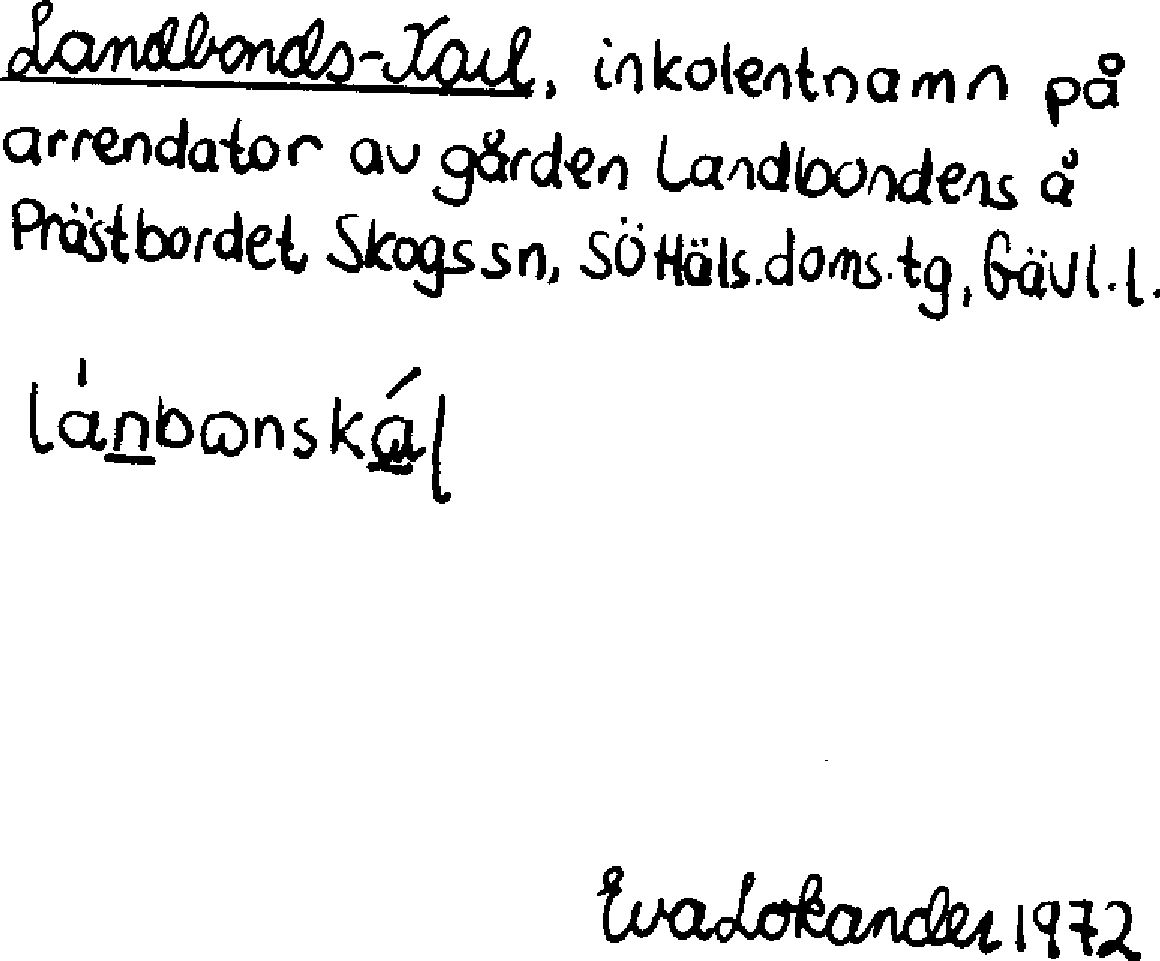 Landbonds-Karl, inkolentnamn på
arrendator av gården Landbondens å
Prästbordet Skogs sn, SÖ Häls. doms. tg, Gävl. l.
lánbɷnskál
Eva Lokander 1972